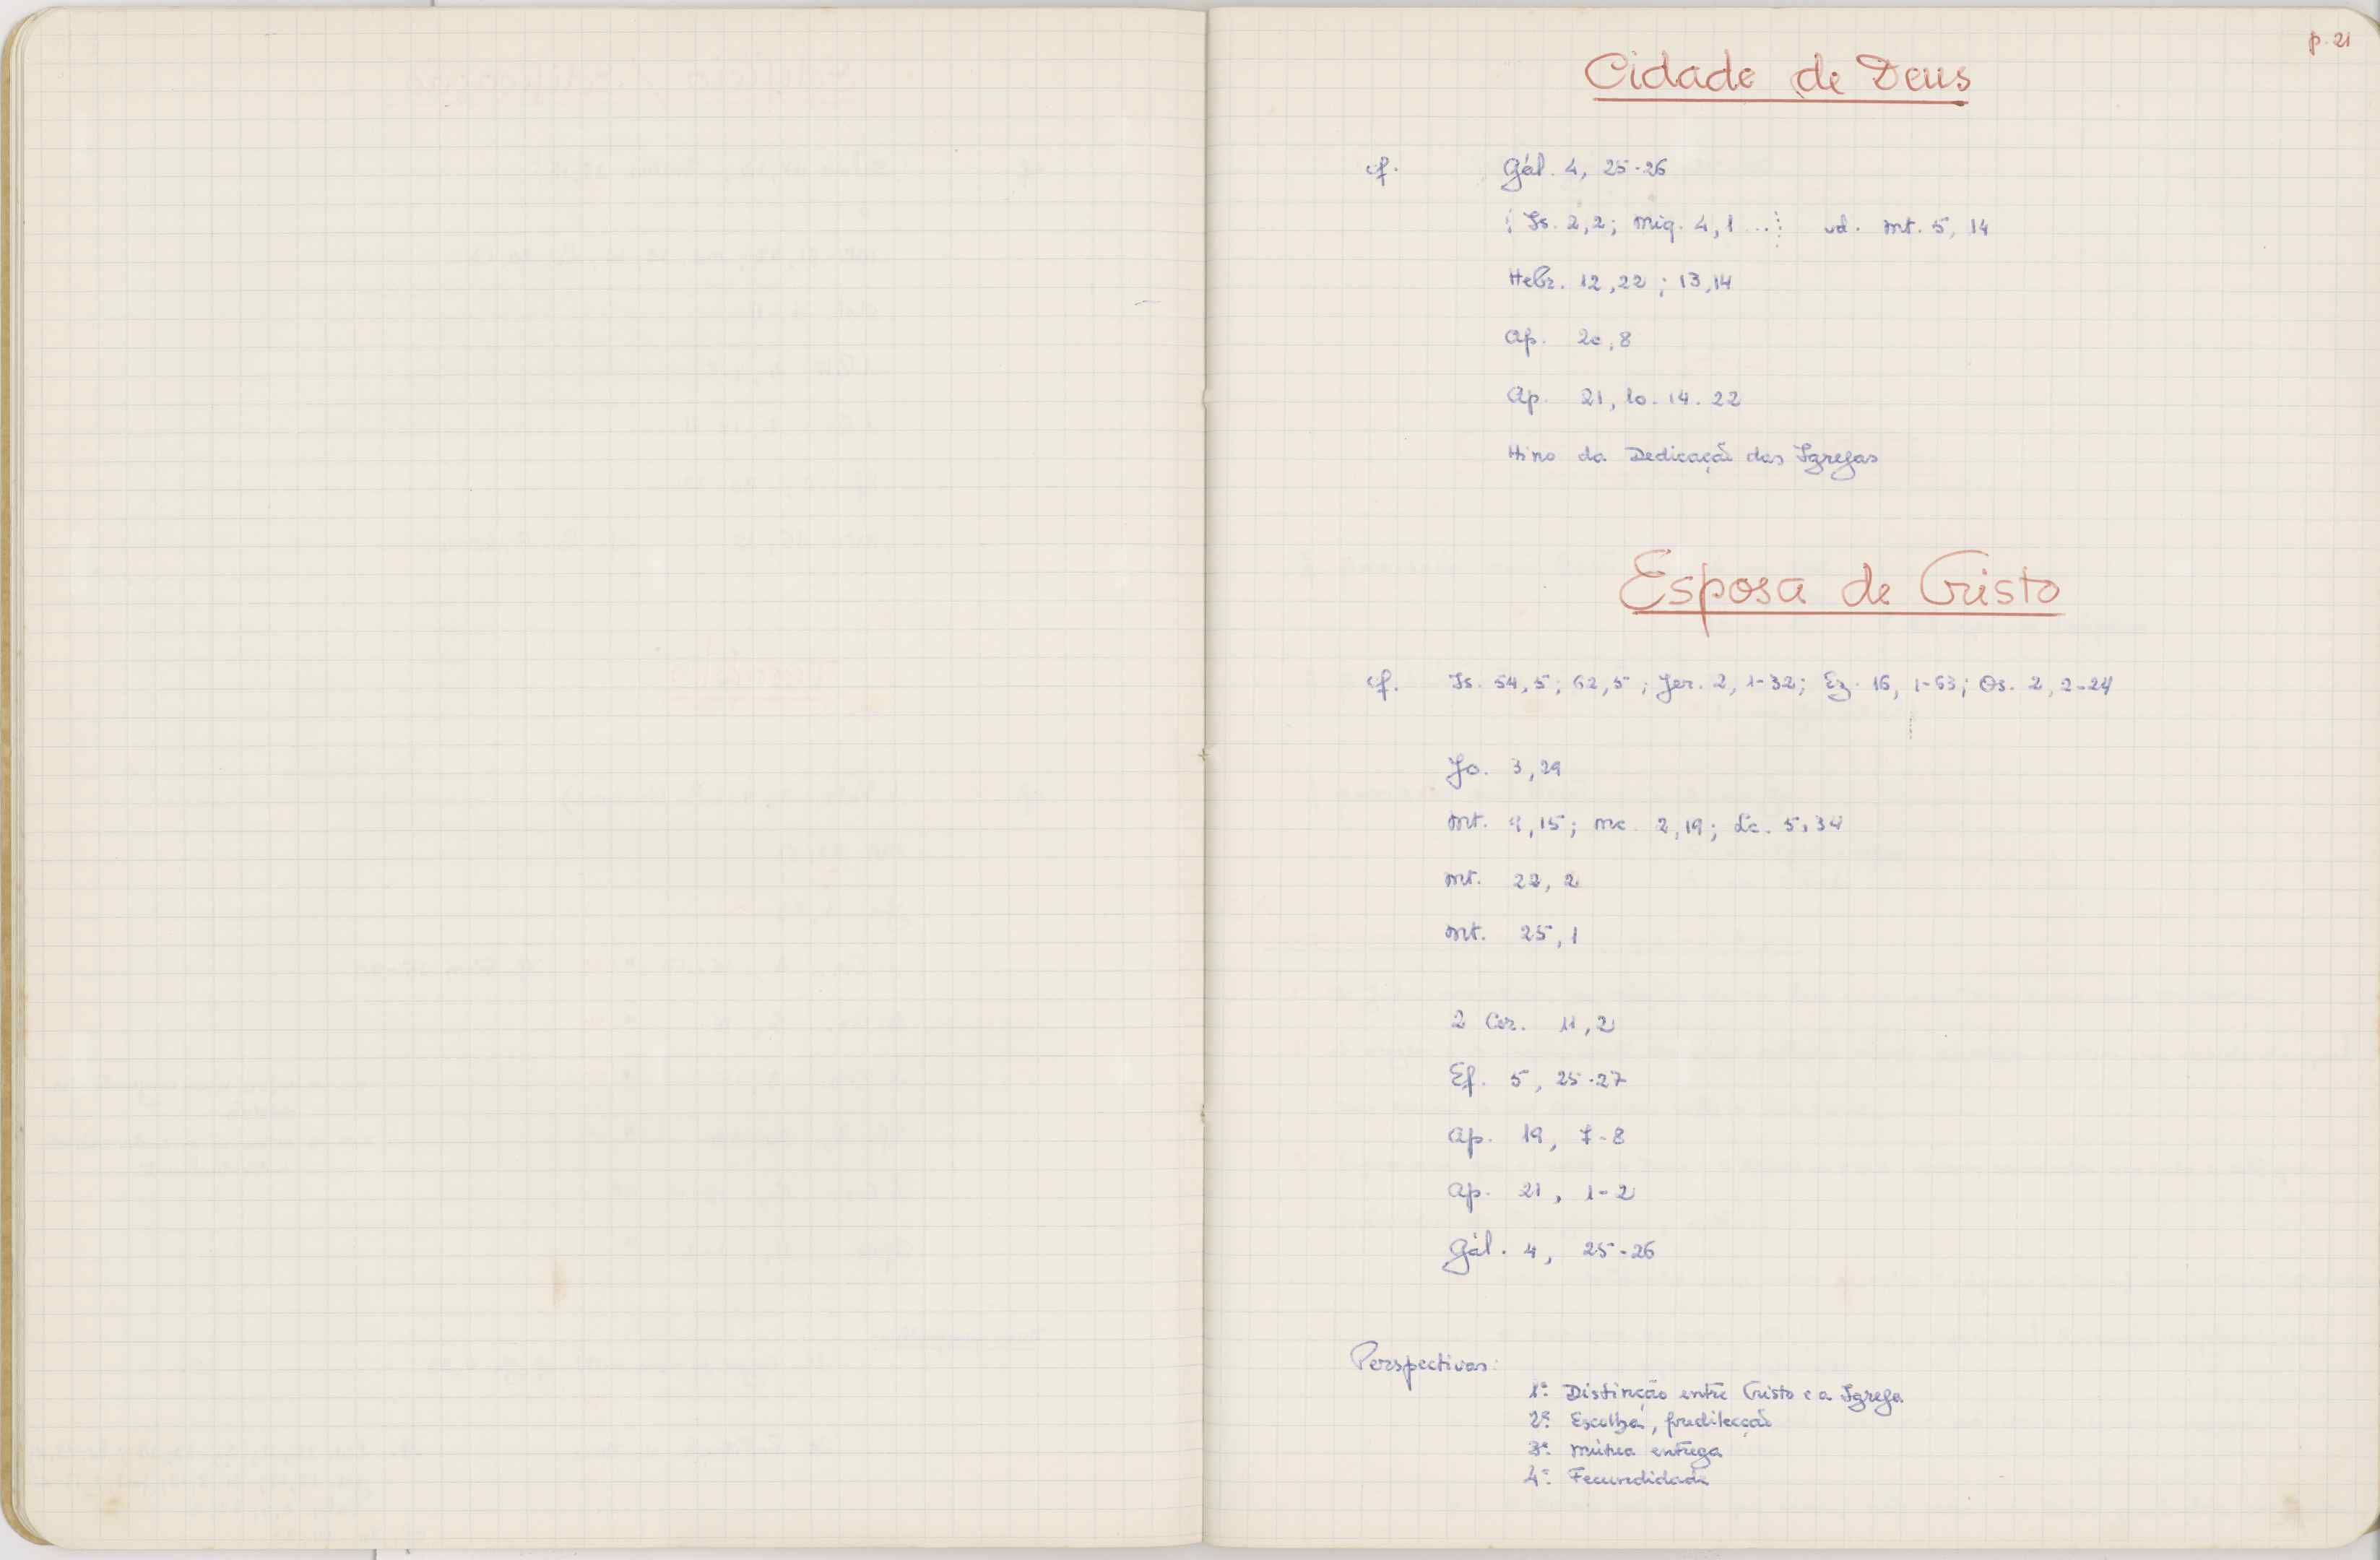 p. 21
Cidade de Deus
cf. Gál. 4, 25-26
Is. 2,2; Miq. 4,1 ... vd. Mt. 5, 14
Hebr. 12,22; 13,14
Ap. 20,8
Ap. 21, 10. 14. 22
Hino da Dedicação das Igrejas
Esposa de Cristo
cf. Is. 54,5; 62,5; Jer. 2, 1-32; Ez. 16, 1-63; Os. 2, 2-24
Jo. 3,29
Mt. 9,15; Mc. 2,19; Lc. 5,34
Mt. 22, 2
Mt. 25,1
2 Cor. 11,2
Ef. 5, 25-27
Ap. 19, 7-8
Ap. 21, 1-2
Gál. 4, 25-26
Perspectivas:
1º. Distinção entre Cristo e a Igreja
2º. Escolha, predilecção
3º. Mútua entrega
4º. Fecundidade